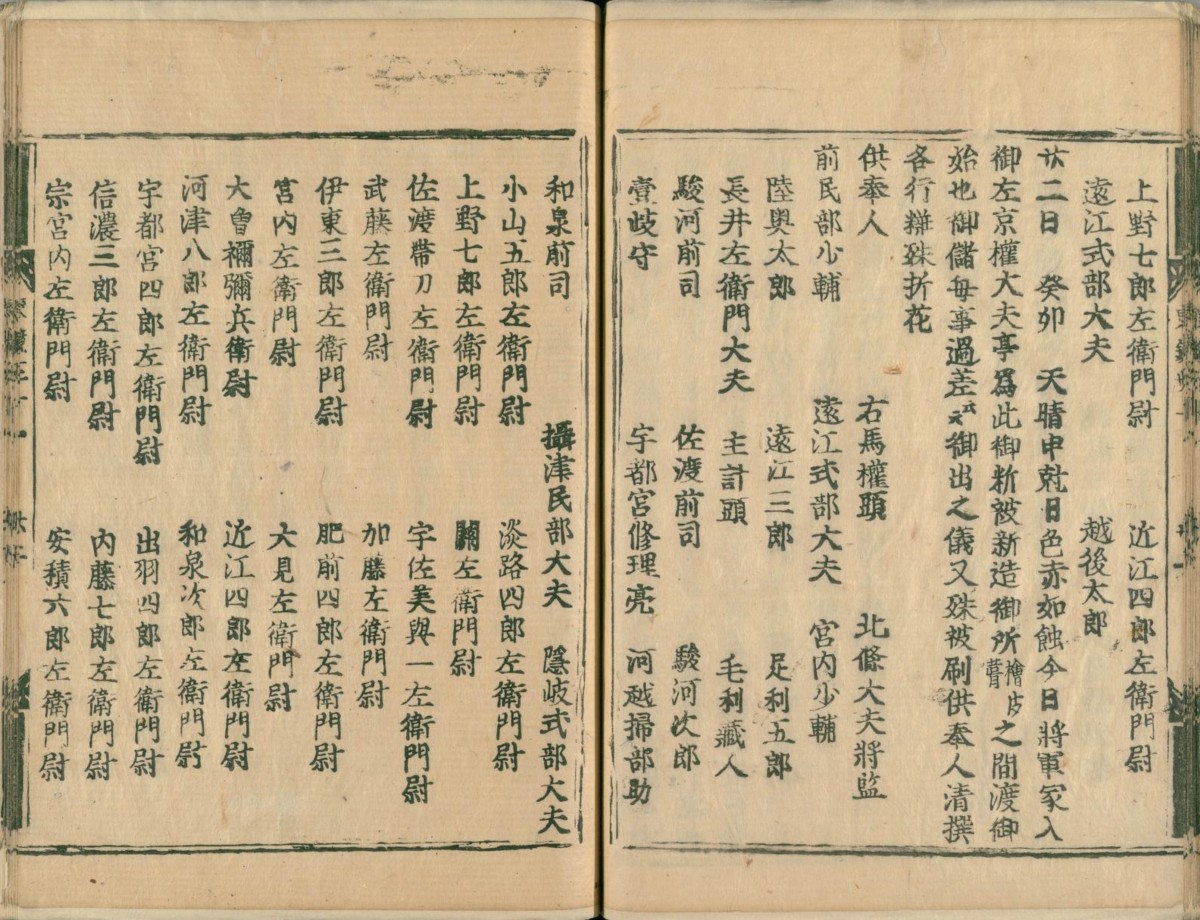 上野七郎左衛門尉　近江四郎左衛門尉
遠江式部大夫　越後太郎
廿二日　癸卯　天晴申剋日色赤如蝕今日將軍家入
御左京權大夫亭爲此御新被新造御所檜皮葺之間渡御
始也御儲每事過差云云御出之儀又殊被刷供奉人清撰
各行粧殊折花
供奉人　右馬權頭　北條大夫將監
前民部少輔　遠江式部大夫　宮内少輔
陸奥太郎　遠江三郎　足利五郎
長井左衛門大夫　主計頭　毛利藏人
駿河前司　佐渡前司　駿河次郎
壹岐守　宇都宮修理亮　河越掃部助
和泉前司　攝津民部大夫　隱岐式部大夫
小山五郎左衛門尉　淡路四郎左衛門尉
上野七郎左衛門尉　關左衛門尉
佐渡帶刀左衛門尉　宇佐美與一左衛門尉
武藤左衛門尉　加藤左衛門尉
伊東三郎左衛門尉　肥前四郎左衛門尉
宮内左衛門尉　大見左衛門尉
大曾禰彌兵衛尉　近江四郎左衛門尉
河津八郎左衛門尉　和泉次郎左衛門尉
宇都宮四郎左衛門尉　出羽四郎左衛門尉
信濃三郎左衛門尉　内藤七郎左衛門尉
宗宮内左衛門尉　安積六郎左衛門尉